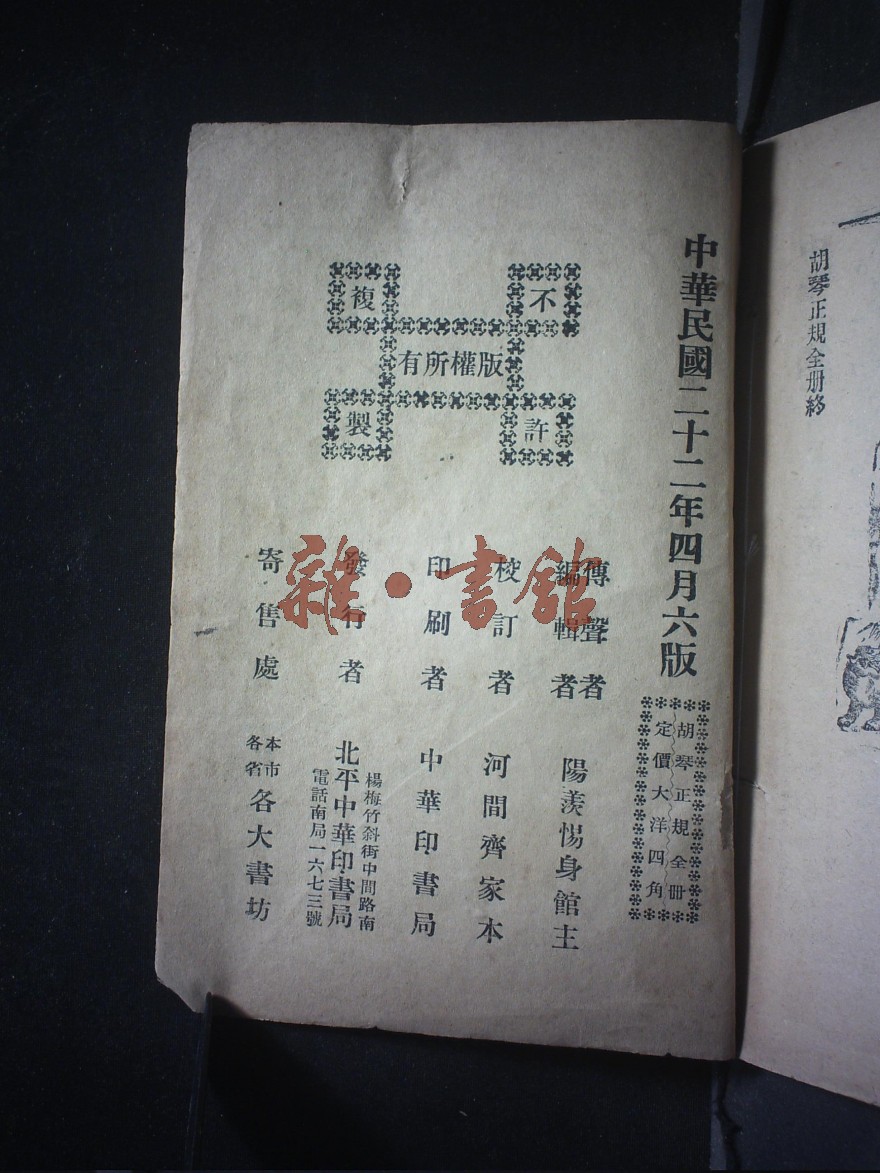 胡琴正規全册終
中華民國二十二年四月六版
胡琴正規全册
定價大洋四角
不許
複製
版權所有
傳聲者
編輯者
陽羨惕身館主
校訂者
河間齊家本
印刷者
中華印書局
發行者
楊梅竹斜街中間路南
北平中華印書局
電話南局一六七三號
寄售處
本市
各省
各大書坊
雜·書館